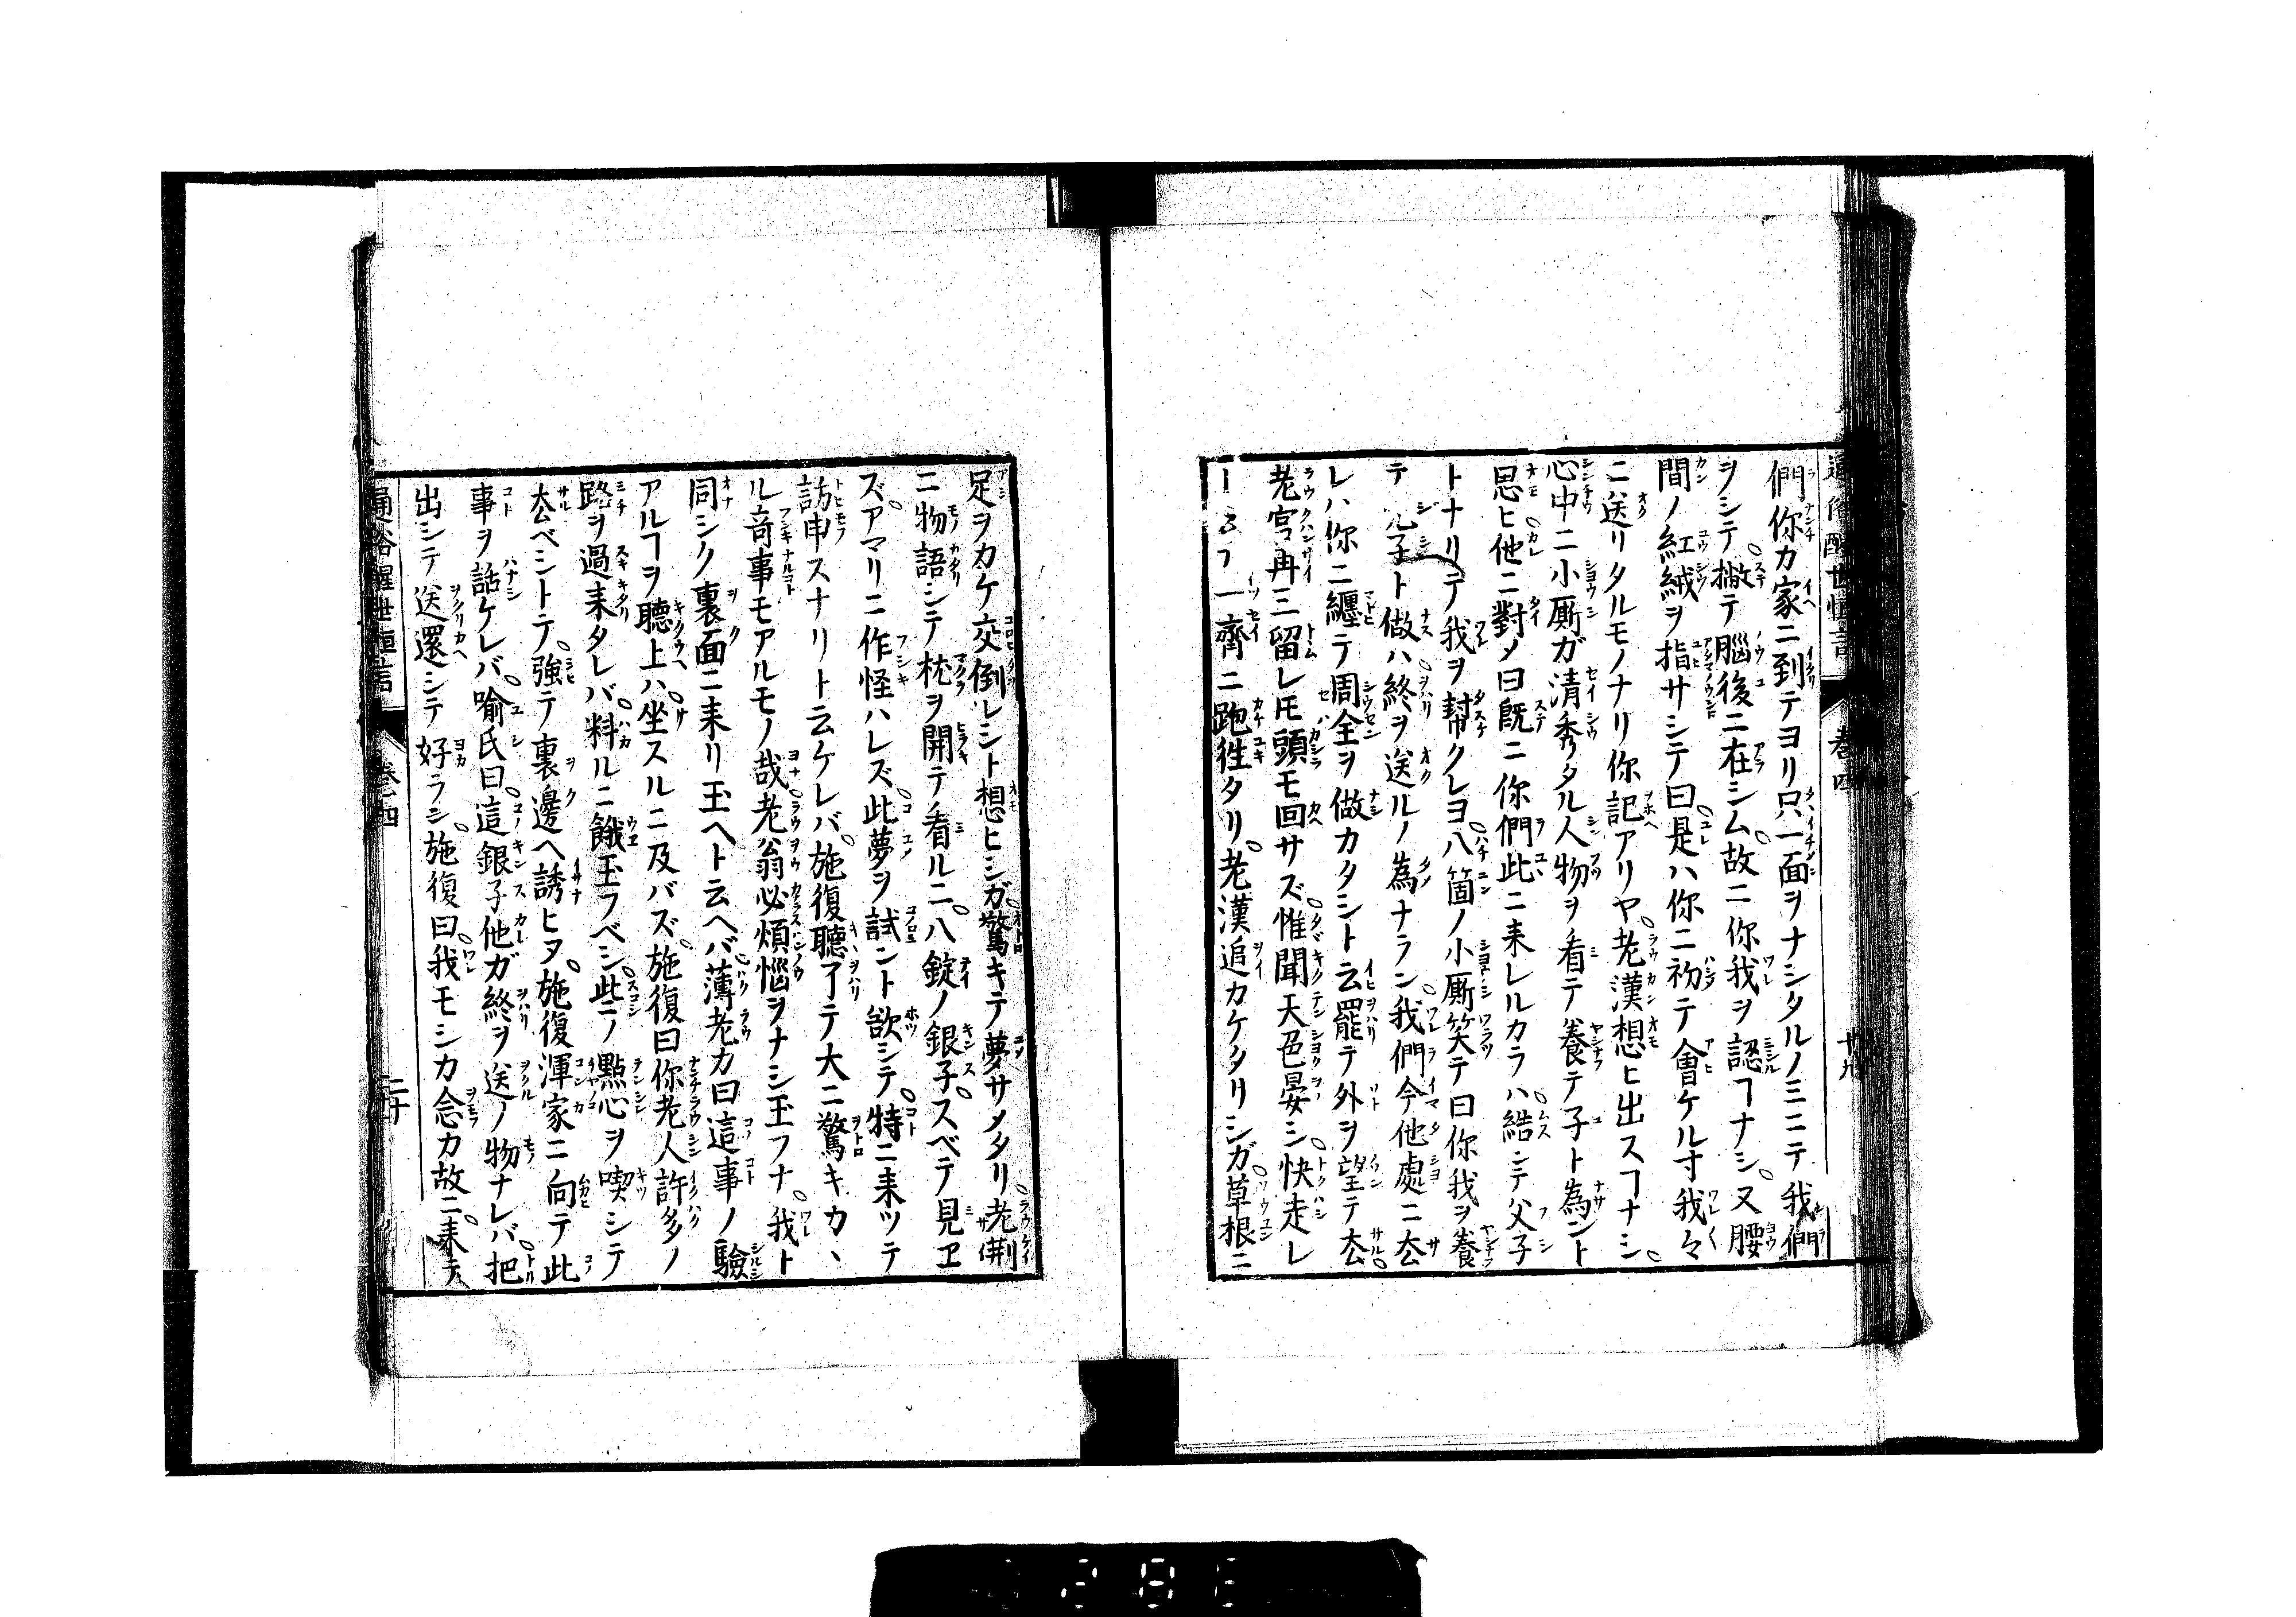 通俗醒世恒言 巻四 十九
們你カ家ニ到テヨリ只一面ヲナシタルノミニテ我們
ヲシテ撇テ腦後ニ在シム故ニ你我ヲ認ヿナシ又腰
間ノ紅絨ヲ指サシテ曰是ハ你ニ初テ會ケル寸我々
ニ送リタルモノナリ你記アリヤ老漢想ヒ出スヿナシ
心中ニ小厮ガ清秀タル人物ヲ看テ養テ子ト為ント
思ヒ他ニ對メ曰既ニ你們此ニ来レルカラハ結テ父子
トナリテ我ヲ幇クレヨ八箇ノ小厮笑テ曰你我ヲ養
テ児子ト做ハ終ヲ送ルノ為ナラン我們今他處ニ厺
レハ你ニ纏テ周全ヲ做カタシト云罷テ外ヲ望テ厺
老官再三留レ𪜈頭モ回サズ惟聞天色晏シ快走レ
一齊ニ跑徃タリ老漢追カケタリシガ草根ニ
足ヲカケ交倒レシト想ヒシガ驚キテ夢サメタリ老荆
ニ物語シテ枕ヲ開テ看ルニ八錠ノ銀子スベテ見ヱ
ズアマリニ作怪ハレズ此夢ヲ試ント欲シテ特ニ来ツテ
訪申スナリト云ケレバ施復聽了テ大ニ驚キカヽ
ル竒事モアルモノ哉老翁必煩惱ヲナシ玉フナ我ト
同シク裏面ニ来リ玉ヘト云ヘバ薄老カ曰這事ノ驗
アルヿヲ聽上ハ坐スルニ及バズ施復曰你老人許多ノ
路ヲ過来タレバ料ルニ餓玉フベシ此ノ點心ヲ喫シテ
厺ベシトテ強テ裏邊ヘ誘ヒヌ施復渾家ニ向テ此
事ヲ話ケレバ喻氏曰這銀子他ガ終ヲ送ノ物ナレバ把
出シテ送還シテ好ラシ施復曰我モシカ念カ故ニ来テ
通俗醒世恒言 巻四 二十